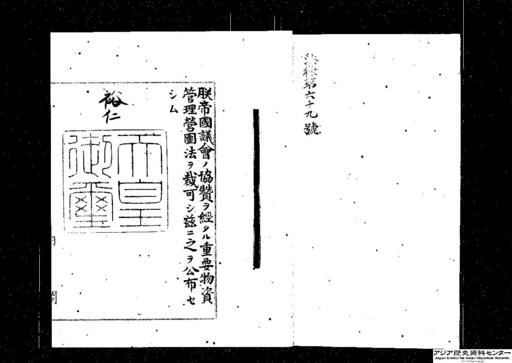 法律第六十九號
朕帝國議會ノ協贊ヲ經タル重要物資
管理營團法ヲ裁可シ茲ニ之ヲ公布セ
シム
裕仁
天皇
御璽
アジア歴史資料センター
Japan Center for Asian Historical Records